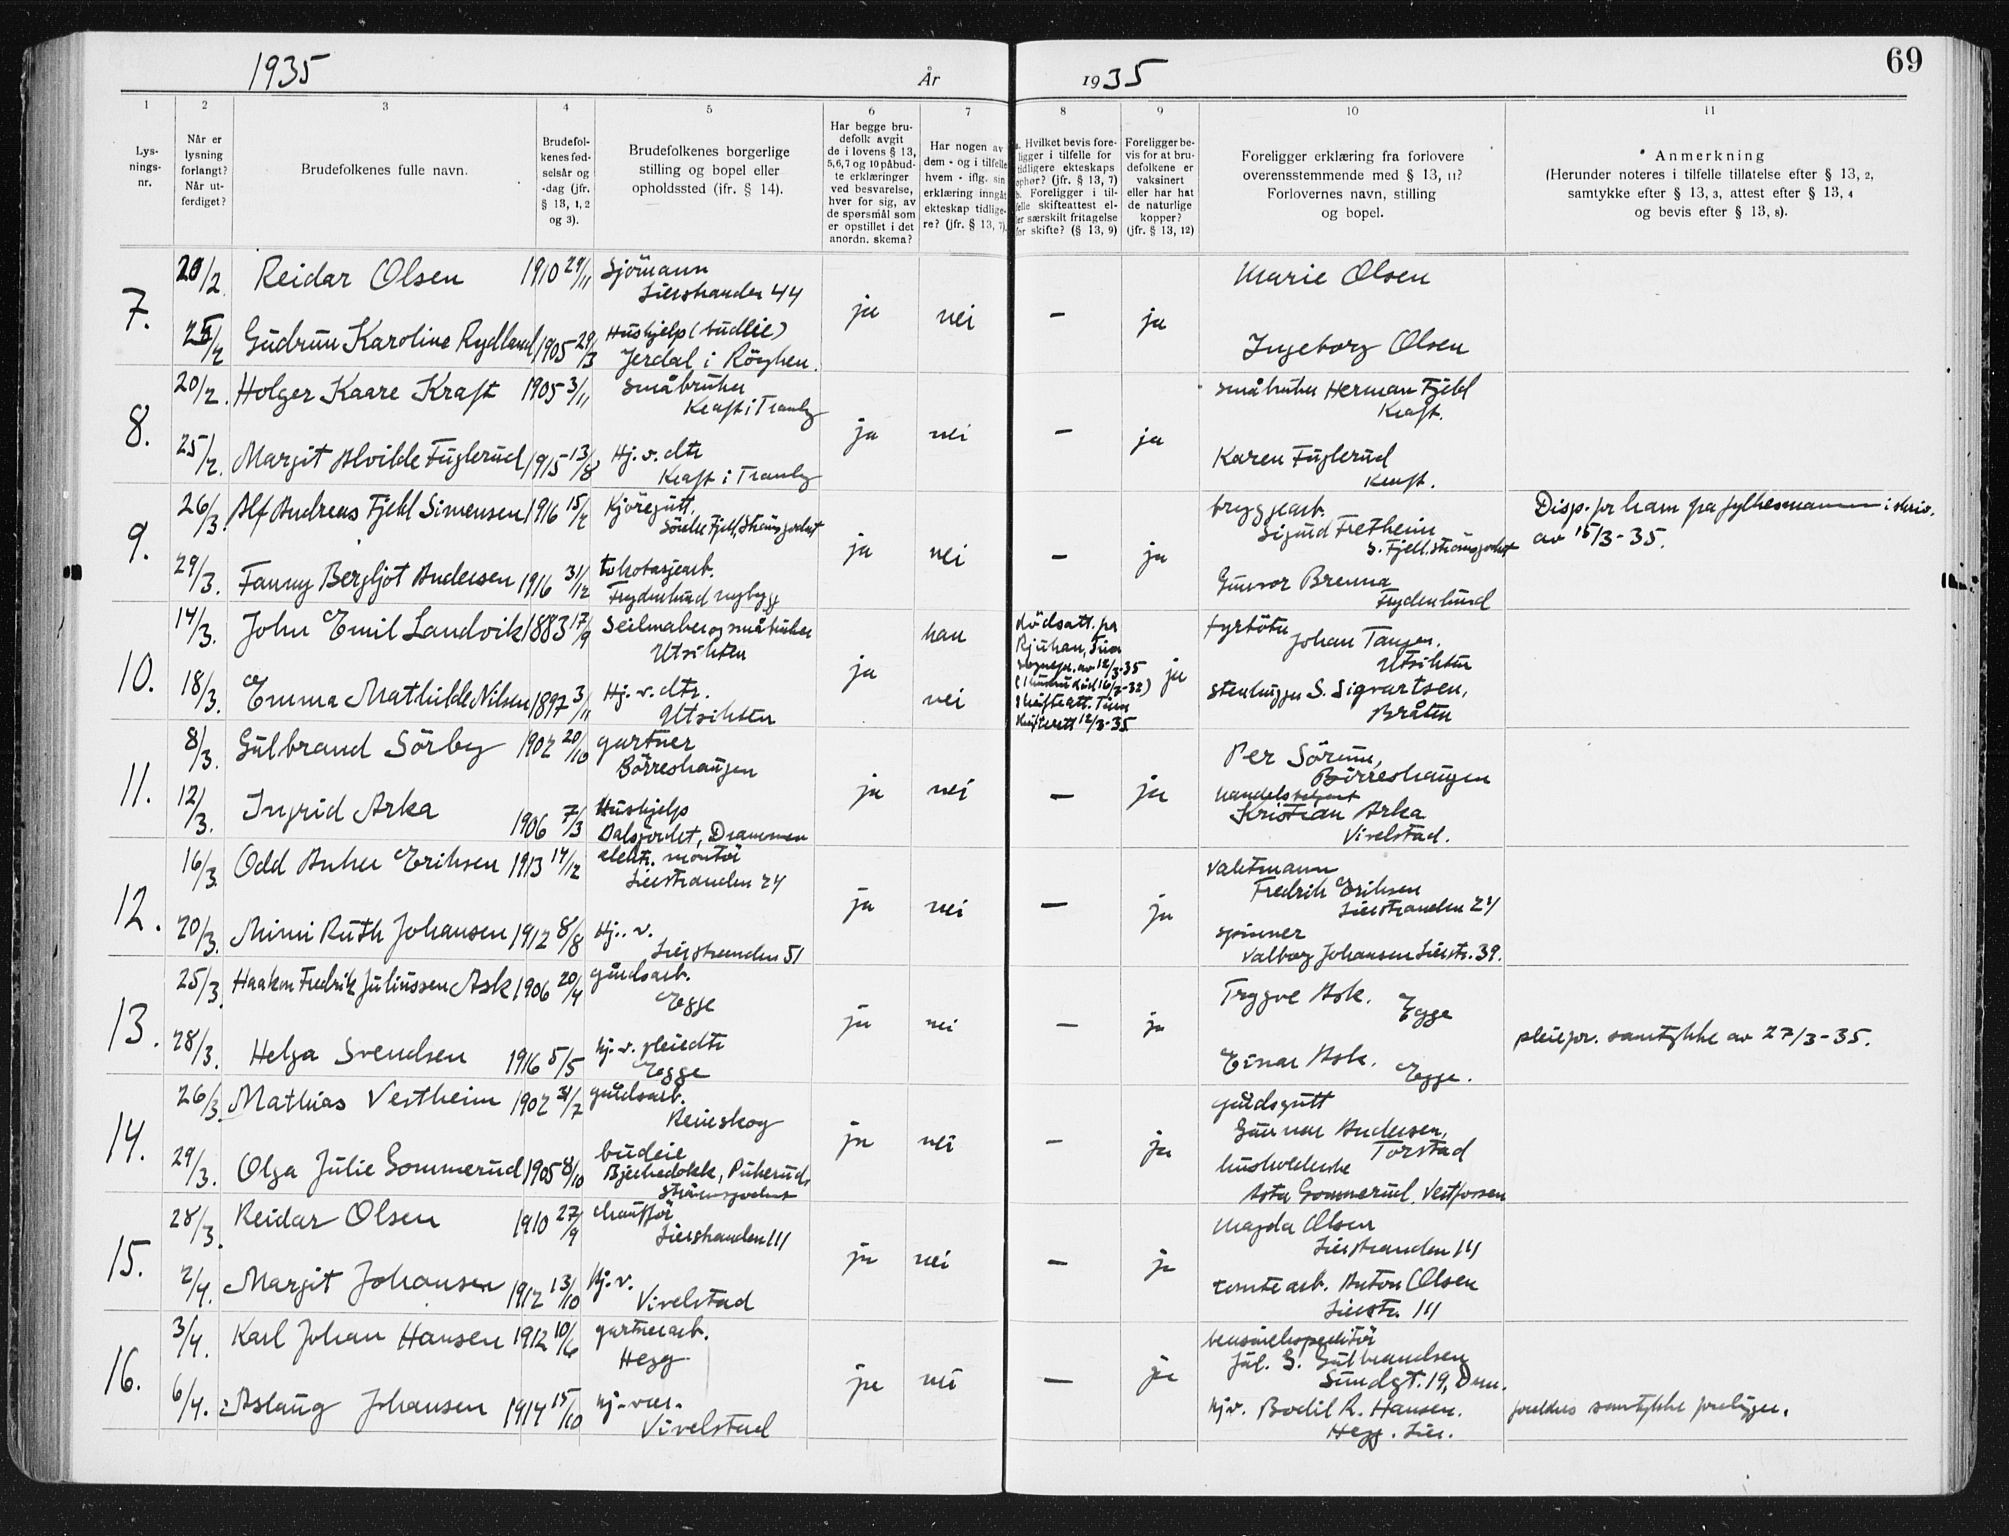 1935
År
1935
69
1
2
3
4
5
6
7
8
9
10
11
Lys-
nings-
nr.
Når er
lysning
forlangt?
Når ut-
ferdiget?
Brudefolkenes fulle navn.
Brudefol-
kenes fød-
selsår og
-dag (jfr.
§ 13, 1, 2
og 3).
Brudefolkenes borgerlige
stilling og bopel eller
opholdssted (ifr. § 14).
Har begge bru-
defolk avgit
de i lovens § 13,
5,6,7 og 10 påbud-
te erklæringer
ved besvarelse,
hver for sig, av
de spørsmål som
er opstillet i det
anordn. skema?
Har nogen av
dem - og i tilfelle
hvem - iflg. sin
erklæring inngått
ekteskap tidlige-
re? (jfr. § 13, 7).
a. Hvilket bevis fore-
ligger i tilfelle for
tidligere ekteskaps
ophør? (jfr. § 13, 7)
b. Foreligger i til-
felle skifteattest el-
ler særskilt fritagelse
for skifte? (§ 13, 9)
Foreligger be-
vis for at bru-
defolkene er
vaksinert
eller har hat
de naturlige
kopper?
(jfr. § 13, 12)
Foreligger erklæring fra forlovere
overensstemmende med § 13, 11?
Forlovernes navn, stilling
og bopel.
Anmerkning
(Herunder noteres i tilfelle tillatelse efter § 13, 2,
samtykke efter § 13, 3, attest efter § 13, 4
og bevis efter § 13, 8).
7.
20/2. Reidar Olsen 1910 29/11 Sjömann
Lierstranden 44
ja nei — ja
Marie Olsen
25/2 Gudrun Karoline Rydland 1905 29/3 Hushjelp (budeie)
Jerdal i Röyken.
Ingeborg Olsen
8.
20/2. Holger Kaare Kraft 1905 3/11 småbruker
Kraft i Tranby
ja nei — ja
småbruker Herman Fjeld
Kraft.
25/2. Margit Alvilde Fuglerud 1915 13/8 Hj. v. dtr
Kraft i Tranby
Karen Fuglerud
Kraft.
9.
26/3. Alf Andreas Fjell Simensen 1916 15/2 Kjöregutt.
Söndre Fjell, Strömsgodset
ja nei — ja
bryggearb.
Sigurd Fretheim
S. Fjell, Strömsgodset
Disp. for ham fra fylkesmannen i skriv.
av 15/3-35.
29/3. Fanny Bergljot Andersen 1916 31/12 tekotasjearb.
Frydenlund nybygg
Gunvor Brenna
Frydenlund
10.
14/3. John Emil Landvik 1883 17/9 Seilmaker og småbruker
Utsikten
ja
han
nei
dödsatt. fra
Rjukan, Tinn
sogneprest. av 12/3-35
skifteatt. Tinn
skifterett 12/3-35
ja
fyrböter
Johan Tangen.
Utsikten
18/3. Emma Mathilde Nilsen 1897 3/11 Hj. v. dtr.
Utsikten
stenhugger S. Sigvartsen,
Bråten
11.
8/3. Gulbrand Sörby 1902 20/10 gartner
Börreshaugen
ja nei — ja
Per Sörum,
Börreshaugen
12/3. Ingrid Arka 1906 7/3 Hushjelp
Dalsjordet, Drammen
handelsbetjent
Kristian Arka
Vivelstad.
12.
16/3. Odd Anker Eriksen 1913 14/12 elektr. montör
Lierstranden 24
ja nei — ja
vaktmann
Fredrik Eriksen
Lierstranden 24
20/3. Mimi Ruth Johansen 1912 8/8 Hj. v.
Lierstranden 51
spinner
Valborg Johansen Lierstr. 39.
13.
25/3. Haakon Fredrik Juliussen Ask 1906 20/4 gårdsarb.
Egge
ja nei — ja
Trygve Ask. Egge
28/3. Helga Svendsen 1916 5/5 hj. v. pleiedtr
Egge
Einar Ask. Egge.
pleiefor. samtykke av 27/3-35.
14.
26/3. Mathias Vestheim 1902 31/7 gårdsarb.
Reneskog
ja nei — ja
gårdsgutt
Gunnar Andersen,
Torstad
29/3. Olga Julie Gommerud 1905 8/10 budeie
Bjerkedokk, Pukerud,
Strömsgodset
husholderske
Asta Gommerud, Vestfossen
15.
28/3. Reidar Olsen 1910 27/9 chaufför
Lierstranden 111
ja nei — ja
Magda Olsen
Lierstranden 111
2/4. Margit Johansen 1912 13/10 Hj. v.
Vivelstad
tomtearb. Anton Olsen
Lierstr. 111
16.
3/4. Karl Johan Hansen 1912 10/6 gartnerarb.
Hegg
ja nei — ja
bensinekspeditör
Jul. G. Gulbrandsen
Sundgt. 19, Drm.
6/4. Aslaug Johansen 1914 15/10 hj. vær.
Vivelstad
hj.v. Bodil R. Hansen.
Hegg. Lier.
foreldres samtykke foreligger.